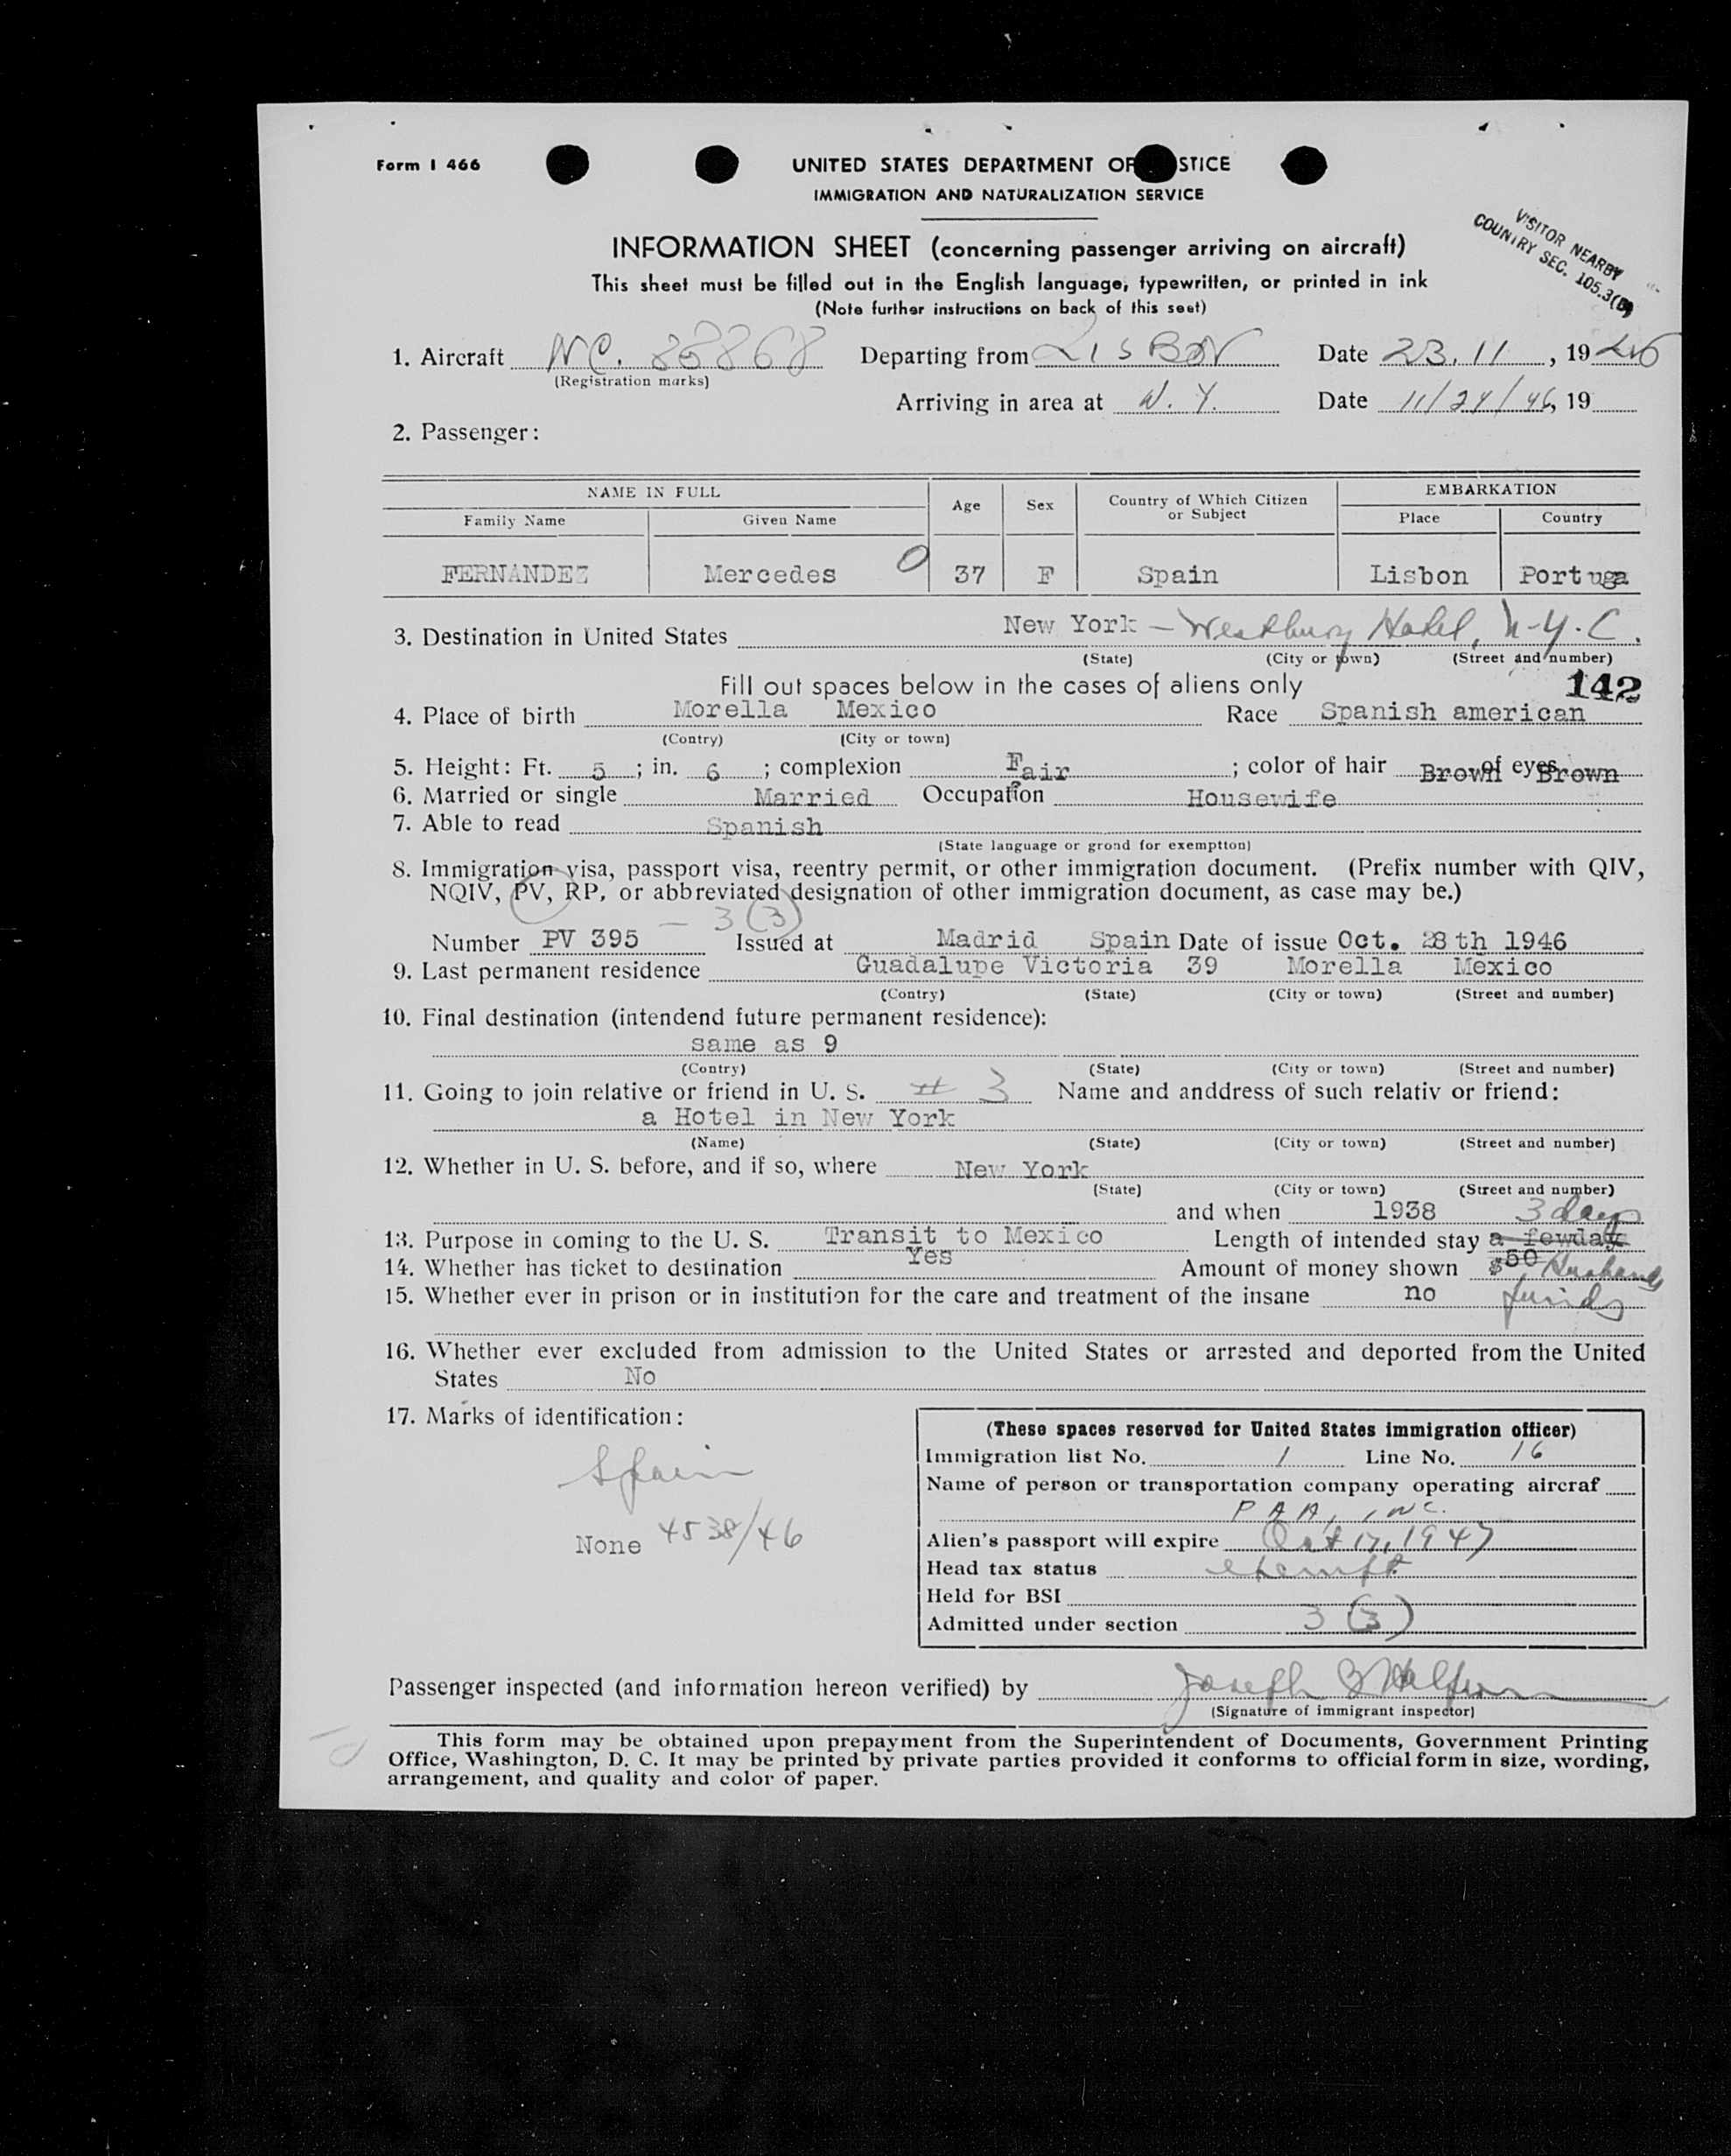 Form I 466
UNITED STATES DEPARTMENT OF STICE
IMMIGRATION AND NATURALIZATION SERVICE
VISITOR NEARBY
COUNTRY SEC. 105.3(B)
INFORMATION SHEET (concerning passenger arriving on aircraft)
This sheet must be filled out in the English language, typewritten, or printed in ink
(Note further instructions on back of this seet)
1. Aircraft NC. 88868 Departing from LISBON Date 23.11, 1946
(Registration marks)
Arriving in area at N.Y. Date 11/24/46, 19
2. Passenger:
NAME IN FULL Age Sex Country of Which Citizen or Subject EMBARKATION
Family Name Given Name Place Country
FERNANDEZ Mercedes 0 37 F Spain Lisbon Portuga
3. Destination in United States New York - Westbury Hotel, N.Y.C.
(State) (City or town) (Street and number)
Fill out spaces below in the cases of aliens only 142
4. Place of birth Morella Mexico Race Spanish american
(Contry) (City or town)
5. Height: Ft. 5; in. 6; complexion Fair; color of hair Brown of eyes Brown
6. Married or single Married Occupation Housewife
7. Able to read Spanish
(State language or grond for exemptton)
8. Immigration visa, passport visa, reentry permit, or other immigration document. (Prefix number with QIV,
NQIV, PV, RP, or abbreviated designation of other immigration document, as case may be.)
— 3(3)
Number PV 395 Issued at Madrid Spain Date of issue Oct. 28th 1946
9. Last permanent residence Guadalupe Victoria 39 Morella Mexico
(Contry) (State) (City or town) (Street and number)
10. Final destination (intendend future permanent residence):
same as 9
(Contry) (State) (City or town) (Street and number)
11. Going to join relative or friend in U. S. # 3 Name and anddress of such relativ or friend:
a Hotel in New York
(Name) (State) (City or town) (Street and number)
12. Whether in U. S. before, and if so, where New York
(State) (City or town) (Street and number)
and when 1938 3 days
13. Purpose in coming to the U. S. Transit to Mexico Length of intended stay a fewdays
14. Whether has ticket to destination Yes Amount of money shown $50 Husbands
15. Whether ever in prison or in institution for the care and treatment of the insane no funds
16. Whether ever excluded from admission to the United States or arrested and deported from the United
States No
17. Marks of identification:
Spain
None 4538/46
(These spaces reserved for United States immigration officer)
Immigration list No. 1 Line No. 16
Name of person or transportation company operating aircraf
PAA, INC.
Alien's passport will expire Oct 17, 1947
Head tax status exempt
Held for BSI
Admitted under section 3(3)
Passenger inspected (and information hereon verified) by Joseph
(Signature of immigrant inspector)
This form may be obtained upon prepayment from the Superintendent of Documents, Government Printing
Office, Washington, D. C. It may be printed by private parties provided it conforms to official form in size, wording,
arrangement, and quality and color of paper.